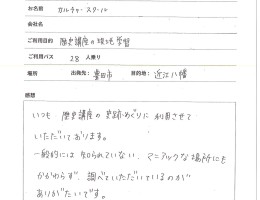 お名前 カルチャースクール
会社名
ご利用目的 歴史講座の現地学習
ご利用バス 28 人乗り
場所 出発先: 豊田市 目的地: 近江八幡
感想
いつも 歴史講座の史跡めぐりに利用させて
いただいております。
一般的には知られていない、マニアックな場所にも
かかわらず、調べていただいているのが
ありがたいです。